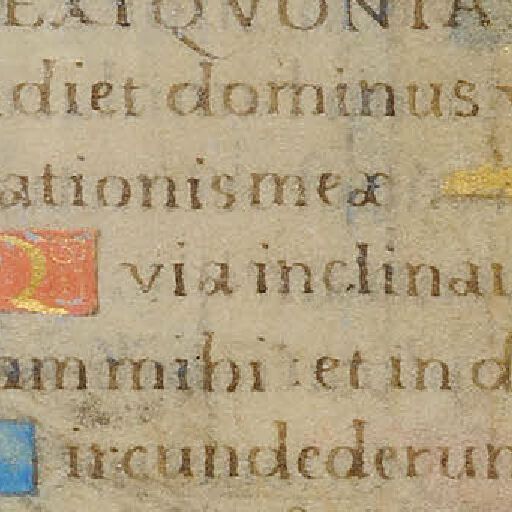 EXIQVONIA
diet dominus v
ationis meæ
Q via inclinau
am mihi : et in d
ircundederun